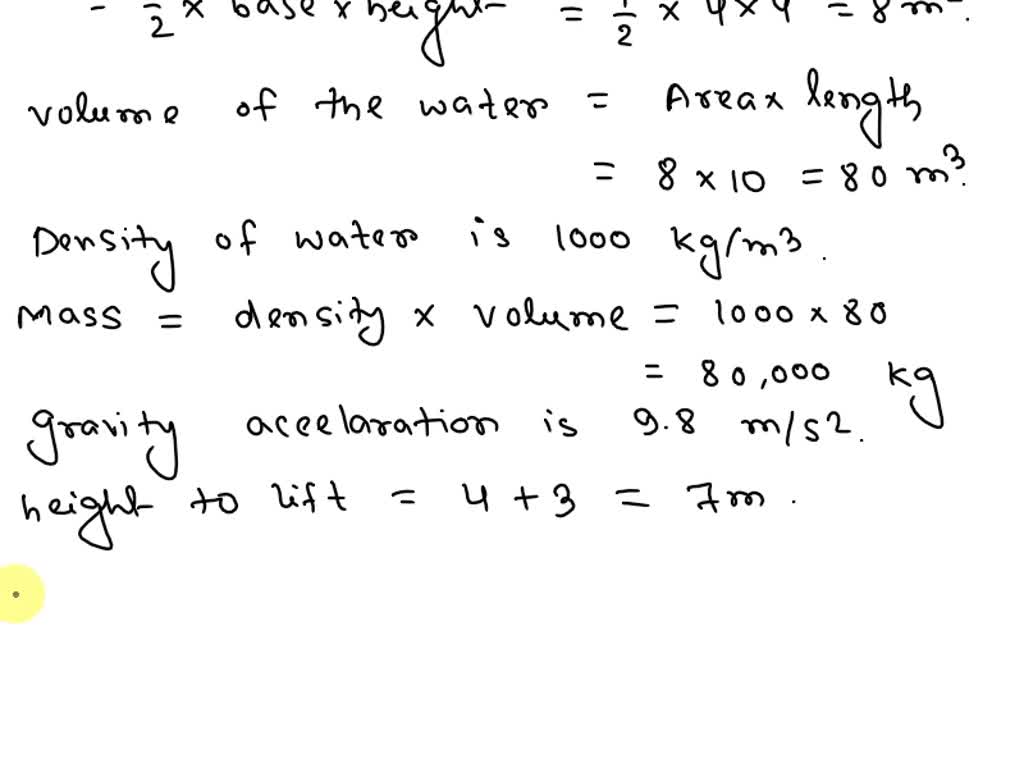 = 1/2 × base × height = 1/2 × 4 × 4 = 8 m².
volume of the water = Area x length
= 8 × 10 = 80 m³.
Density of water is 1000 kg/m3.
Mass = density × volume = 1000 × 80
= 80,000 kg
gravity accelaration is 9.8 m/s2.
height to lift = 4 + 3 = 7m.